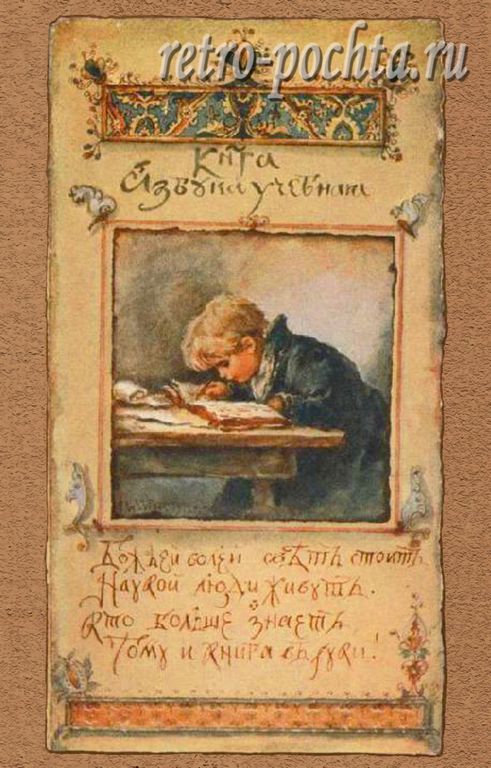 retro-pochta.ru
Книга
Азбука учебная
Божьей волей свѣтъ стоитъ
Наукой люди живутъ.
Кто больше знаетъ,
Тому и книга въ руки!